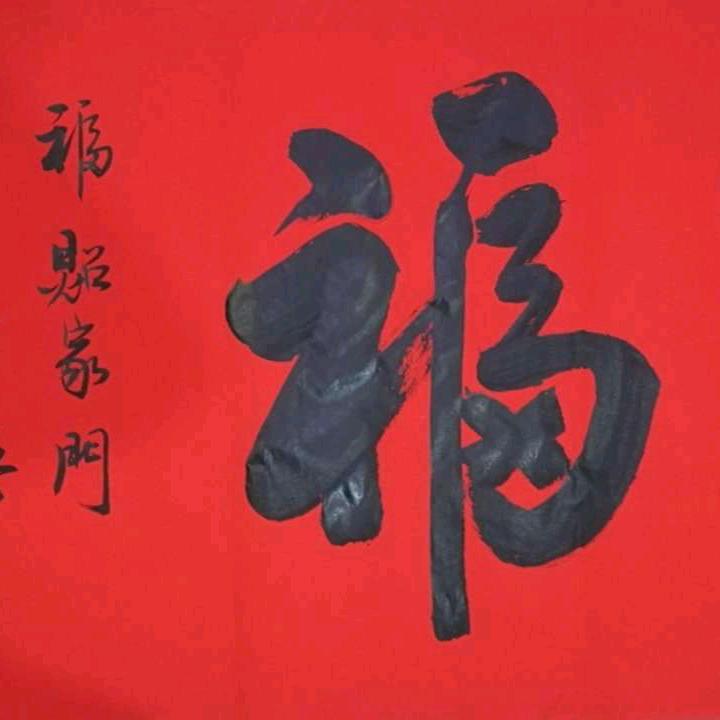 福
福照家門